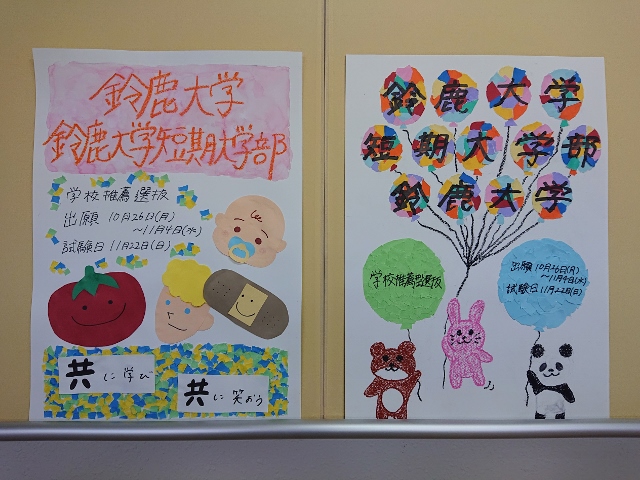 鈴鹿大学
鈴鹿大学短期大学部
学校推薦選抜
出願 10月26日(月)
～11月4日(水)
試験日 11月22日(日)
共に学び
共に笑おう
鈴鹿大学
短期大学部
鈴鹿大学
学校推薦型選抜
出願 10月26日(月)
～11月4日(水)
試験日 11月22日(日)